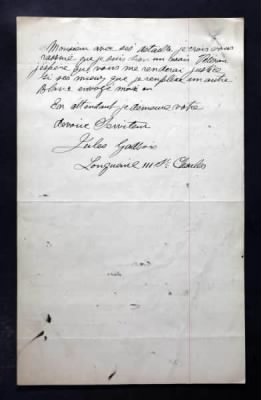 Monsieur avec ces détailles je crois vous
que je suis bien un
j'espere que vous me renderai justice
Si ces mieux que je remplise un autre
Blanc envoye mois en
En attendant je demeure votre
devouée Serviteur
Jules
Longueuil 111 St Charles